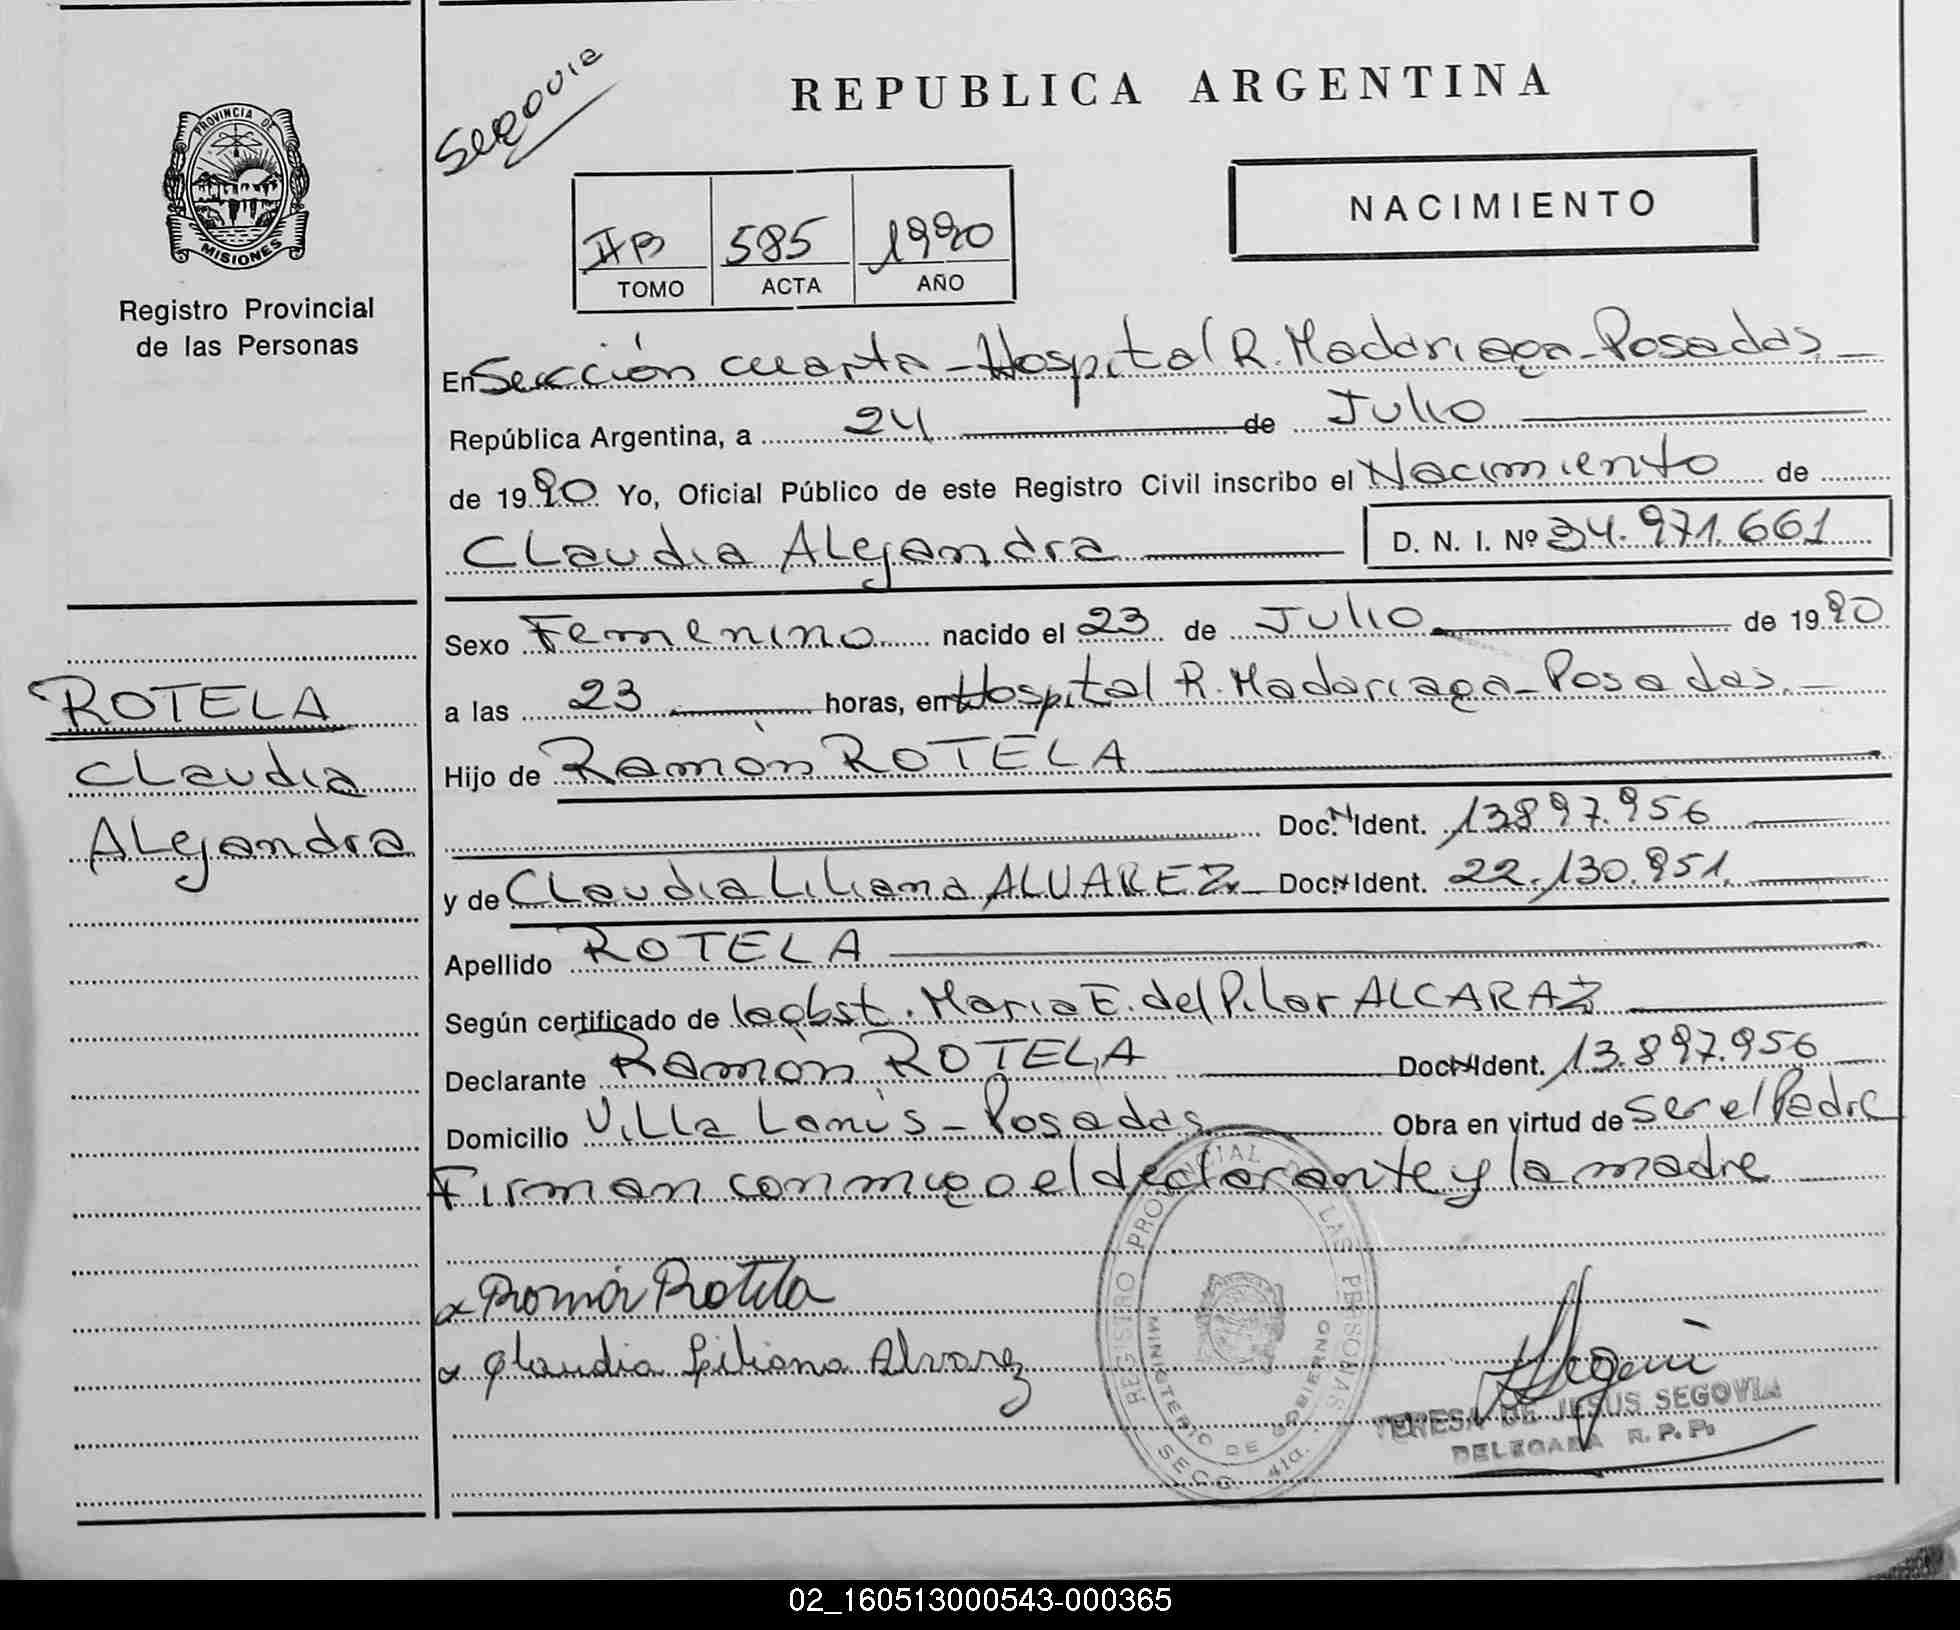 Segovia
REPUBLICA ARGENTINA
PROVINCIA DE MISIONES
Registro Provincial
de las Personas
NACIMIENTO
II B 585 1990
TOMO ACTA AÑO
En Sección cuarta - Hospital R. Madariaga - Posadas
República Argentina, a 24 de Julio
de 1990 Yo, Oficial Público de este Registro Civil inscribo el Nacimiento de
Claudia Alejandra D. N. I. Nº 34.971.661
Sexo Femenino nacido el 23 de Julio de 1990
a las 23 horas, en Hospital R. Madariaga - Posadas.
Hijo de Ramón ROTELA
Doc. N Ident. 13.897.956
y de Claudia Liliana ALVAREZ Doc. N Ident. 22.130.951
Apellido ROTELA
Según certificado de la obst. Maria E. del Pilar ALCARAZ
Declarante Ramón ROTELA Doc. N Ident. 13.897.956
Domicilio Villa Lanús - Posadas Obra en virtud de ser el Padre
Firman conmigo el declarante y la madre
ROTELA
Claudia
Alejandra
Román Rotela
Claudia Liliana Alvarez
REGISTRO PROVINCIAL DE LAS PERSONAS
MINISTERIO DE GOBIERNO
SECC. 4ta.
TERESA DE JESUS SEGOVIA
DELEGADA R. P. P.
02_160513000543-000365